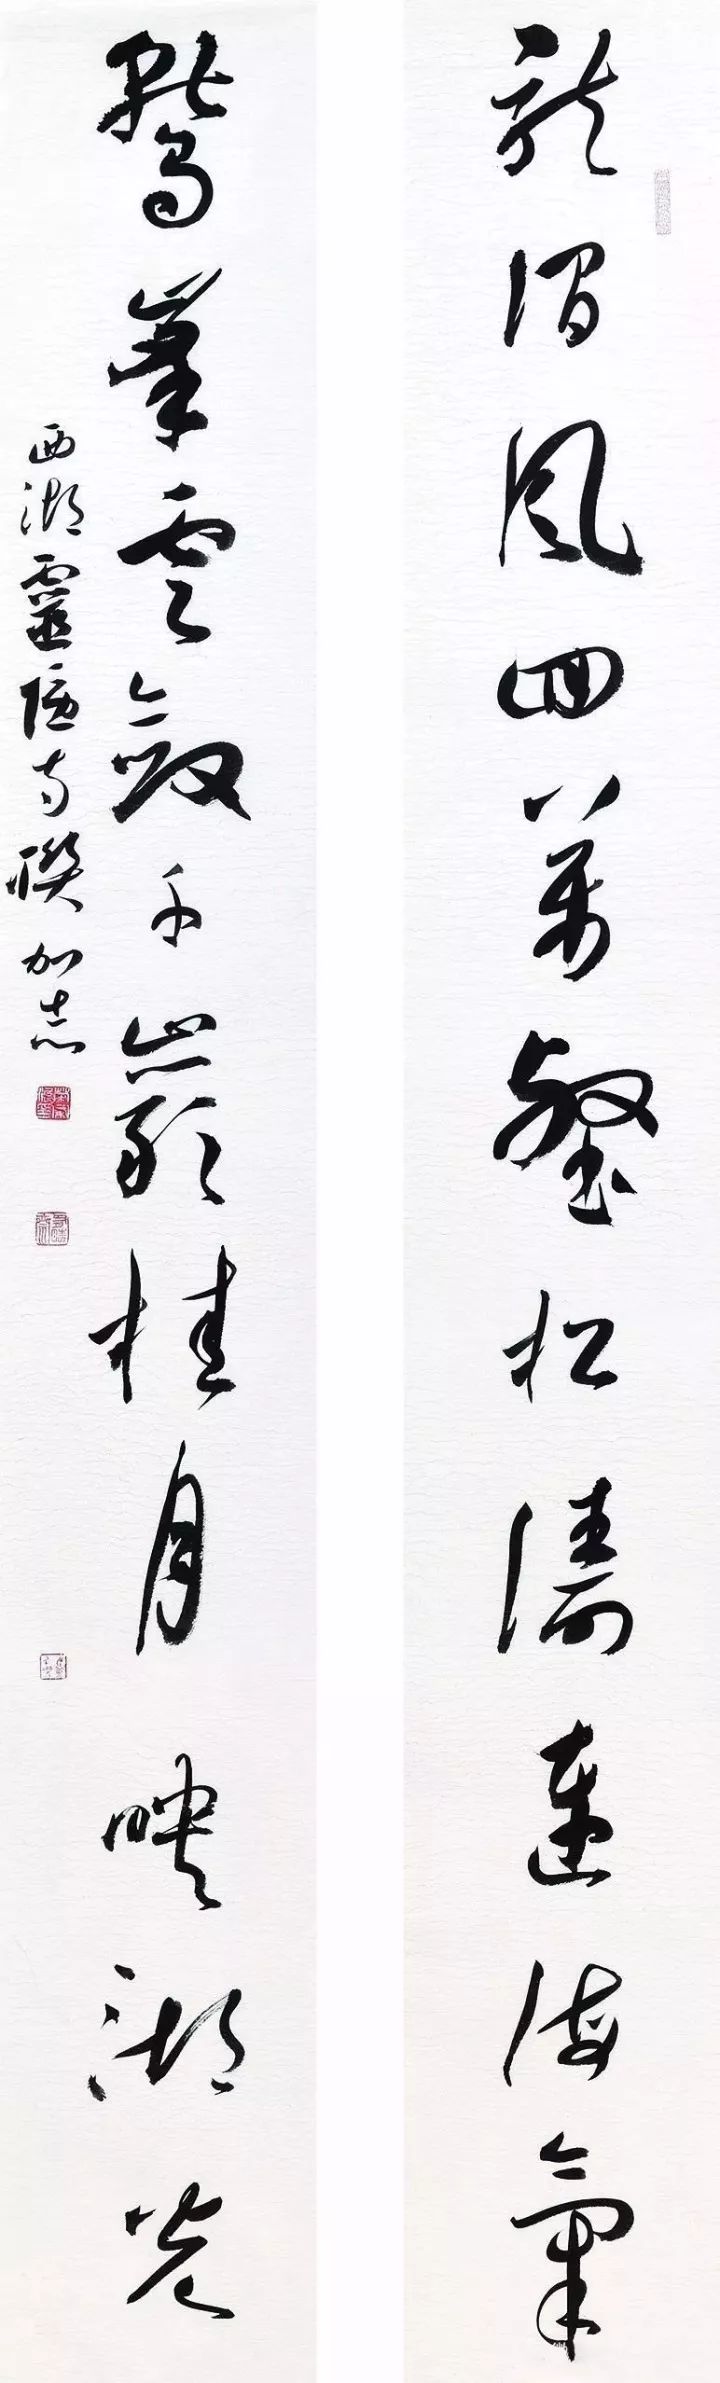 龍澗風回萬壑松濤連海氣
鷲峯雲斂千巖桂月映湖光
西湖靈隱寺聯 加志